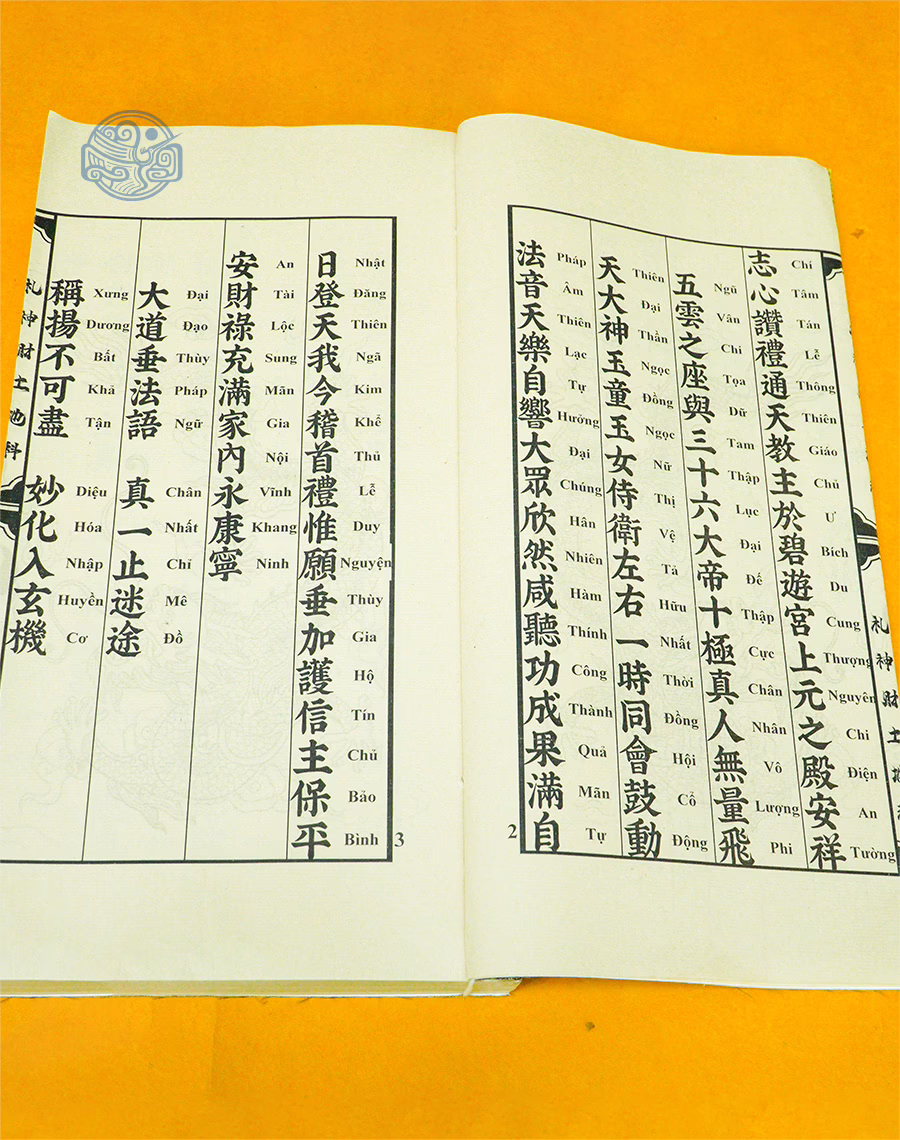 礼神財土地
Chí Tâm Tán Lễ Thông Thiên Giáo Chủ Ư Bích Du Cung Thượng Nguyên Chi Điện An Tường
志心讚禮通天教主於碧遊宮上元之殿安祥
Ngũ Vân Chi Tọa Dữ Tam Thập Lục Đại Đế Thập Cực Chân Nhân Vô Lượng Phi
五雲之座與三十六大帝十極真人無量飛
Thiên Đại Thần Ngọc Đồng Ngọc Nữ Thị Vệ Tả Hữu Nhất Thời Đồng Hội Cổ Động
天大神玉童玉女侍衛左右一時同會鼓動
Pháp Âm Thiên Lạc Tự Hưởng Đại Chúng Hân Nhiên Hàm Thính Công Thành Quả Mãn Tự
法音天樂自響大眾欣然咸聽功成果滿自
2
3
Nhật Đăng Thiên Ngã Kim Khể Thủ Lễ Duy Nguyện Thùy Gia Hộ Tín Chủ Bảo Bình
日登天我今稽首禮惟願垂加護信主保平
An Tài Lộc Sung Mãn Gia Nội Vĩnh Khang Ninh
安財祿充滿家內永康寧
Đại Đạo Thùy Pháp Ngữ Chân Nhất Chỉ Mê Đồ
大道垂法語 真一止迷途
Xưng Dương Bất Khả Tận Diệu Hóa Nhập Huyền Cơ
稱揚不可盡 妙化入玄機
礼神財土地科